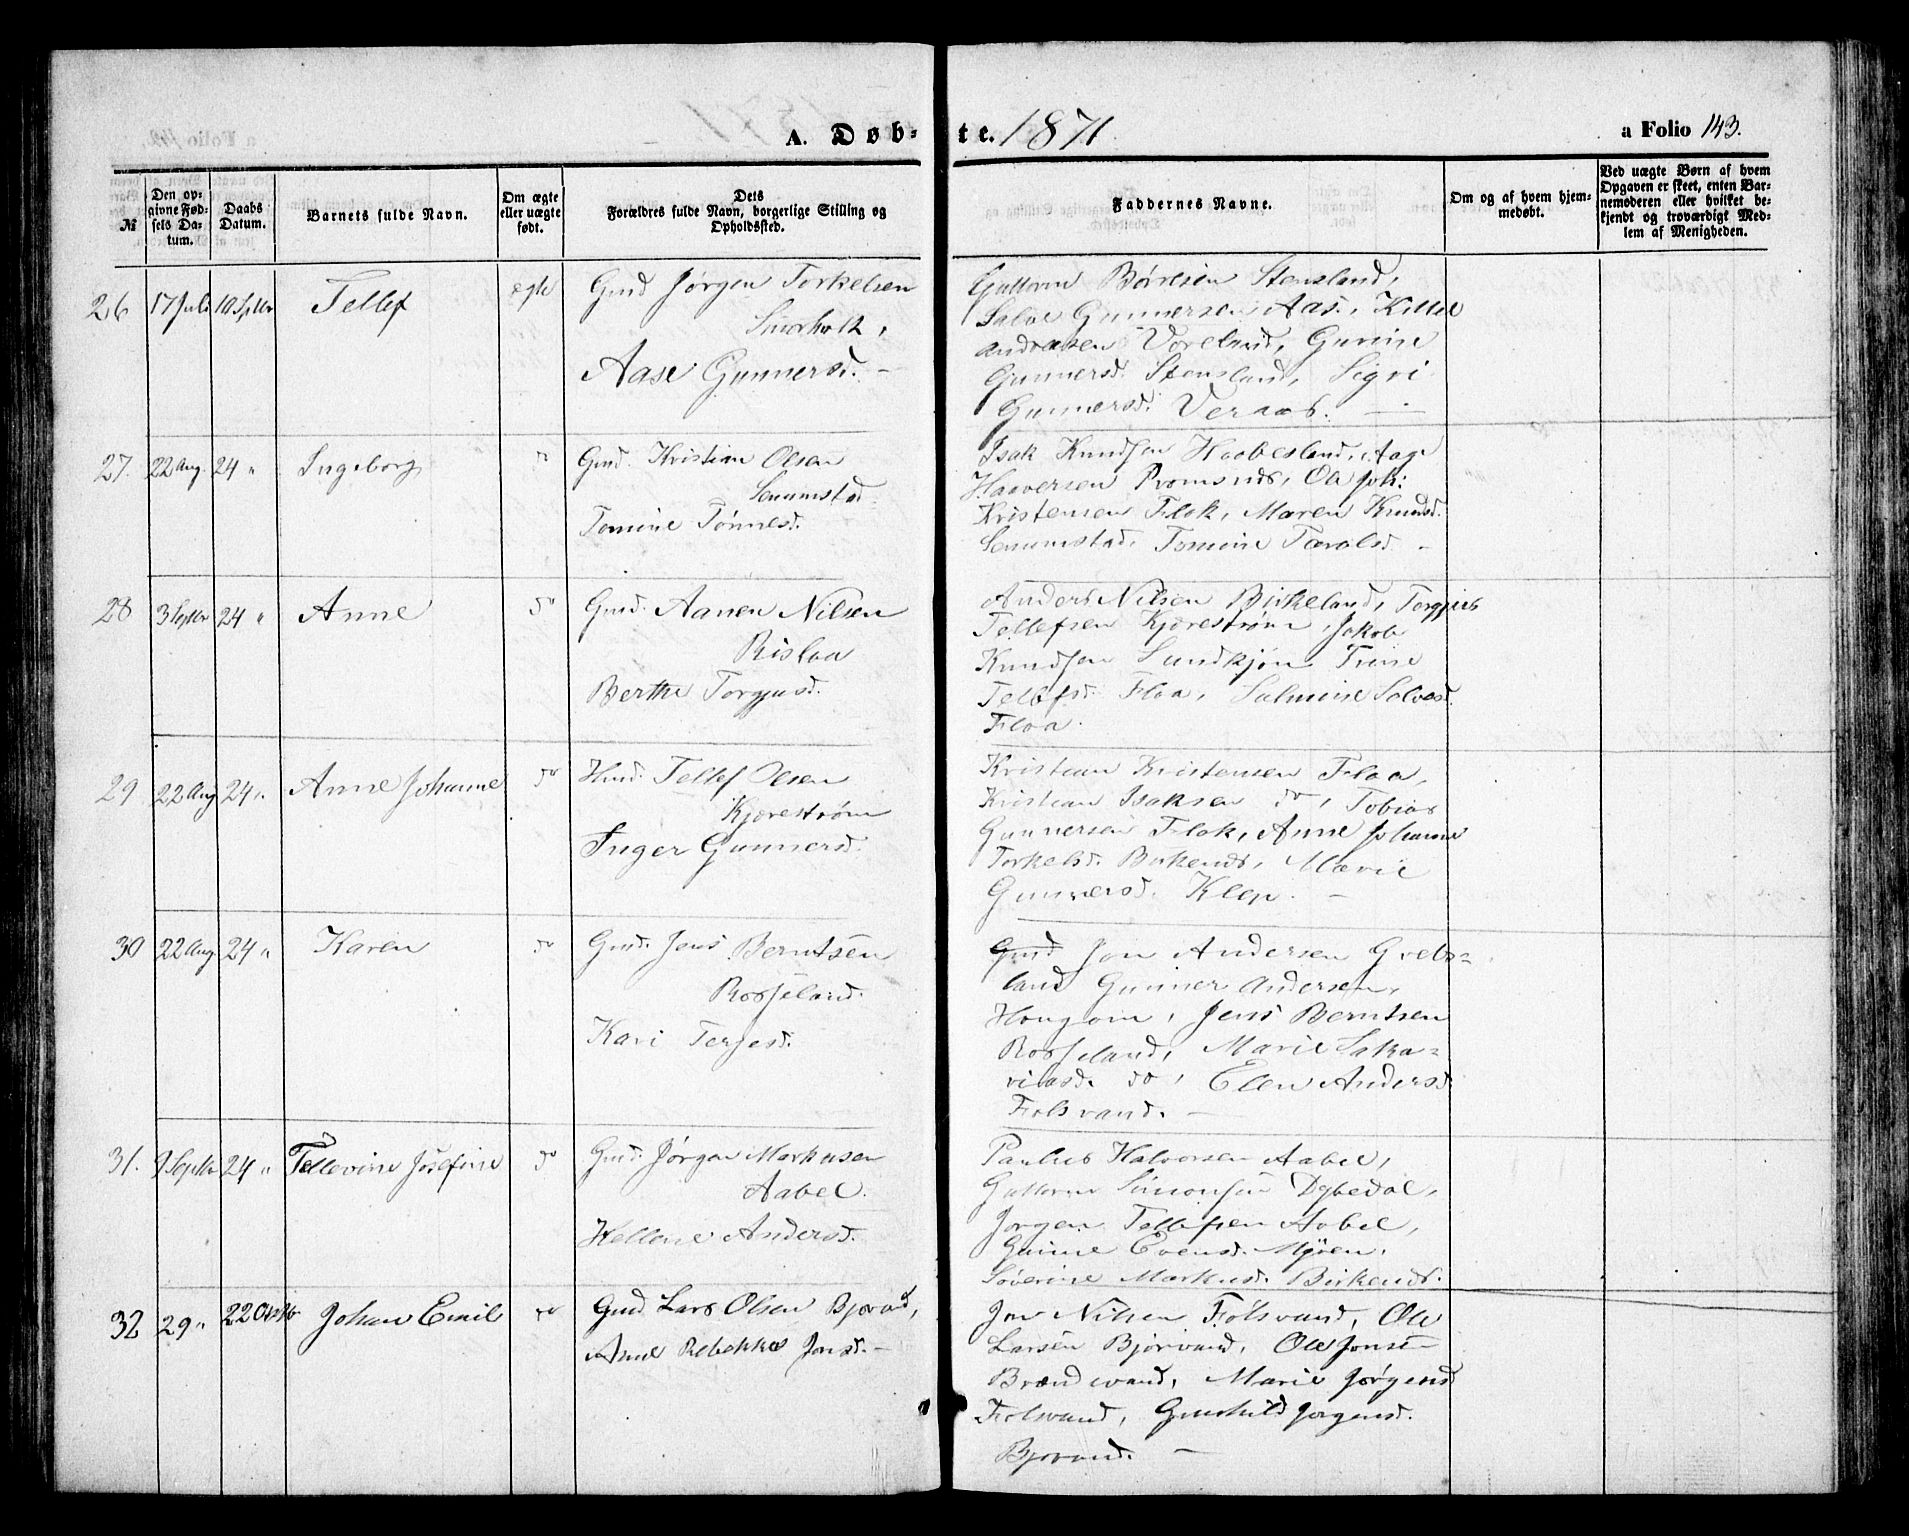 A. Døb-te. 1871
a Folio 143.
№
Den op-givne Fød-sels Da-tum.
Daabs Datum.
Barnets fulde Navn.
Om ægte eller uægte født.
Dets Forældres fulde Navn, borgerlige Stilling og Opholdssted.
Faddernes Navne.
Om og af hvem hjem-medøbt.
Ved uægte Børn af hvem Opgaven er skeet, enten Bar-nemoderen eller hvilket be-kjendt og troværdigt Med-lem af Menigheden.
26 17 Juli 10 Septbr Tellef ægte Gmd Jørgen Torkelsen
Aase Gunnersd. -
Guttorm Børresen Stensland,
Salve Gunnersen Aas, Kittel
Andreasen Voreland, Gurine
Gunnersd. Stensland, Sigri
Gunnersd. Veraas. -
27. 22 Aug. 24 " Ingeborg " Gmd. Kristian Olsen
Senumstad.
Tomine Tønnesd.
Isak Knudsen Haabesland, Aage
Haaversen Promsnds, Ole Joh:
Kristensen Flak, Maren Knudsd.
Senumstad, Tomine Taralsd. -
28 3 Septbr 24 " Anne do Gmd. Aanen Nilsen
Rislaa
Berthe Torgjusd.
Anders Nilsen Birkeland, Torgjus
Tellefsen Kjærestrøm, Jakob
Knudsen Sundkjøn Trine
Tellefsd. Flaa, Salmine Salvesd.
Flaa.
29 22 Aug 24 ". Anne Johanne do Husd. Tellef Olsen
Kjærestrøm
Inger Gunnersd.
Kristian Kristensen Flaa,
Kristian Isaksen do, Tobias
Gunnersen Flak, Anne Johanne
Torkelsd. Birkends, Marie
Gunnersd. Klep. -
30 22 Aug. 24 " Karen do Gmd. Jens Berntsen
Rosseland.
Kari Terjesd.
Gmd Jon Andersen Grebs=
land Gunner Andersen,
Hougom, Jens Berntsen
Rosseland, Marie Saka=
riasd. do, Elen Andersd.
Folsvand. -
31. 9 Septbr 24 " Tellevine Josefine do Gmd. Jørgen Markusen
Aabel.
Hellene Andersd.
Paulus Halvorsen Aabel,
Guttorm Simonsen Dybedal,
Jørgen Tellefsen Aabel,
Gunne Evensd. Myren,
Søverine Markusd. Birkends.
32 29 " 22 Oktbr Johan Emil do Gmd Lars Olsen Bjorvand,
Anne Rebekka Jonsd. -
Jon Nilsen Folsvand, Ole
Larsen Bjorvand, Ole Jonsen
Brændvand, Marie Jørgensd
Folsvand, Gunhild Jorgensd.
Bjorvand. -